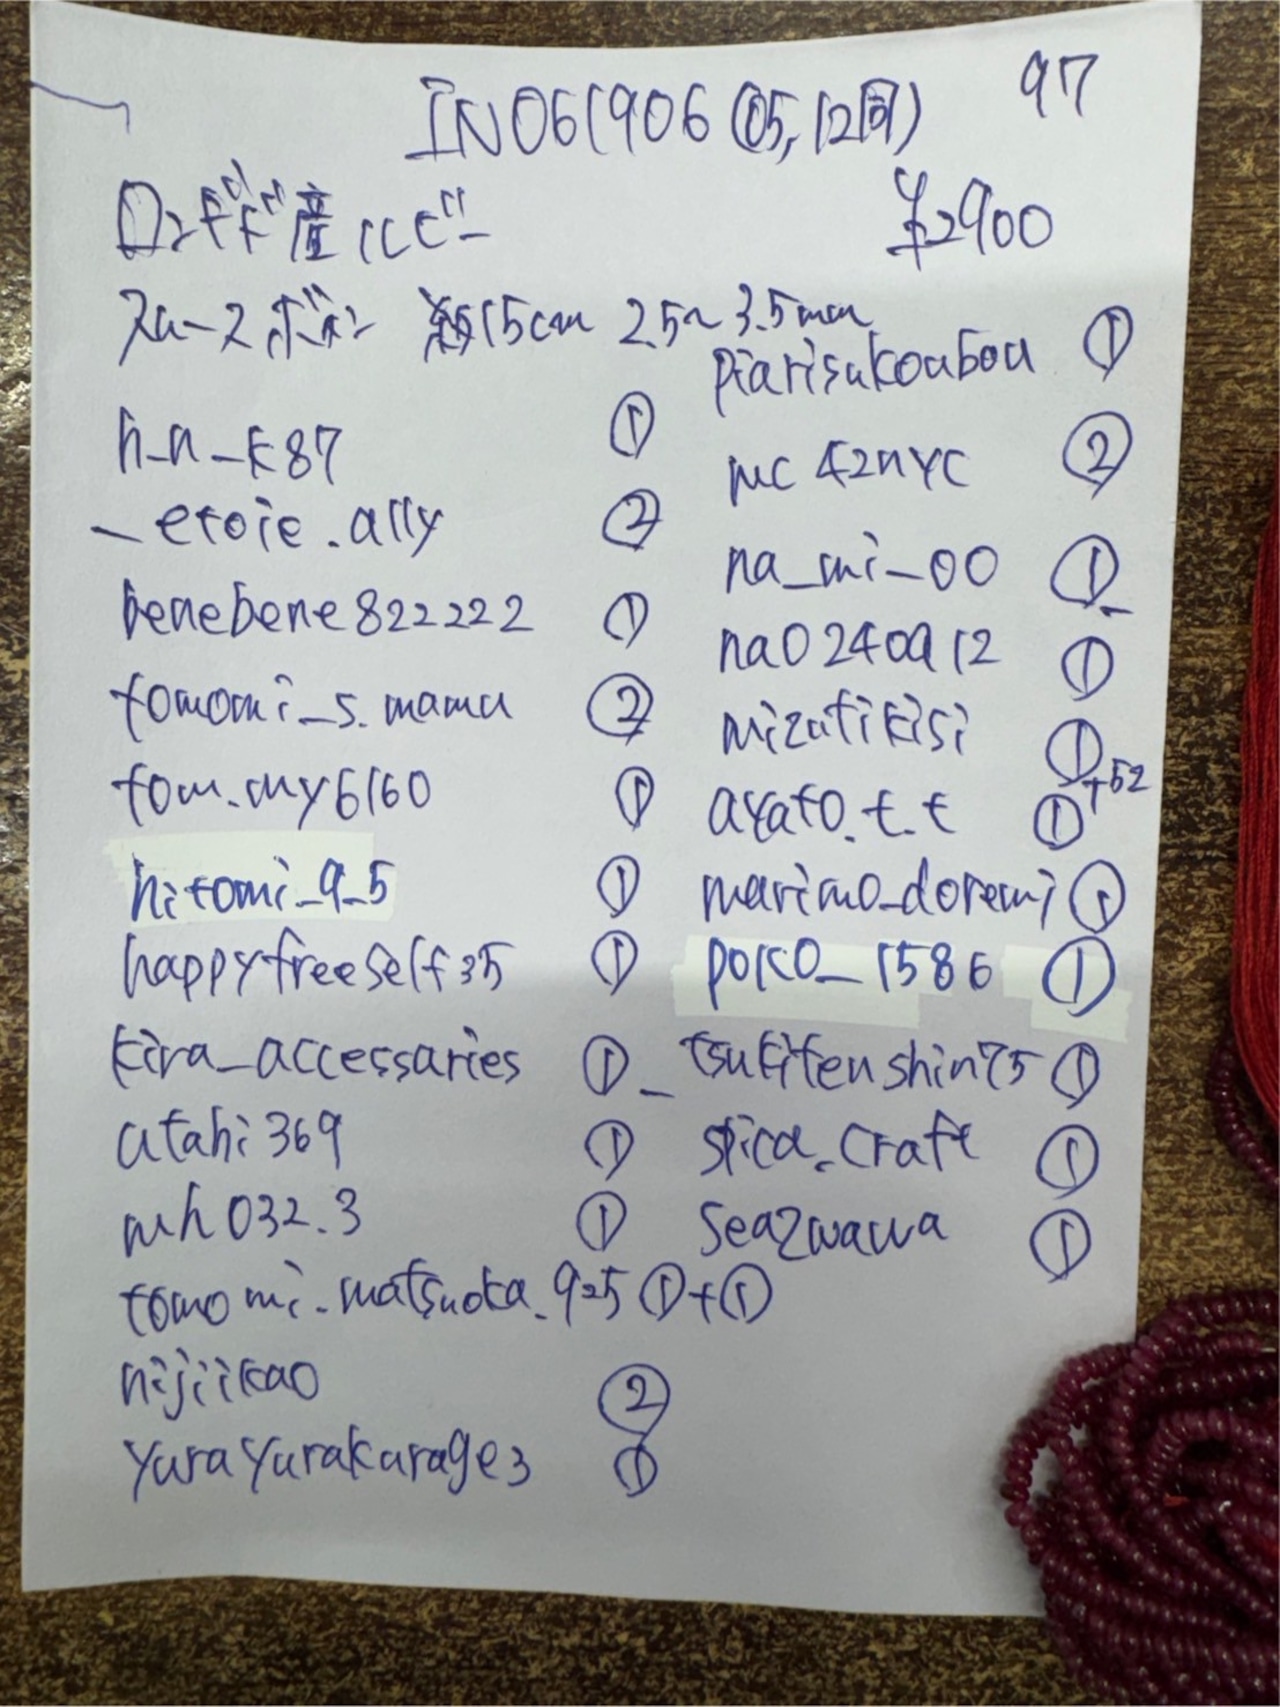 IN061906 (05,12回) 97
ロンドド産ルビー ¥2900
約15cm 2.5~3.5mm
h_n_k87 ①
_etoie.ally ②
benebene822222 ①
tomomi_s.mama ②
tom.my6160 ①
hitomi_9_5 ①
happyfreeself35 ①
kira_accessaries ①
atahi369 ①
mh032.3 ①
tomomi.matsuoka.925 ①+①
nijiikao ②
yurayurakurage3 ①
piarisukoubou ①
mc42nyc ②
na_mi_00 ①
na0240912 ①
mizutikisi ①+52
ayato.t.t ①
marimo_doremi ①
poko_1586 ①
_tsukitenshin75 ①
spica.craft ①
sea2wawa ①